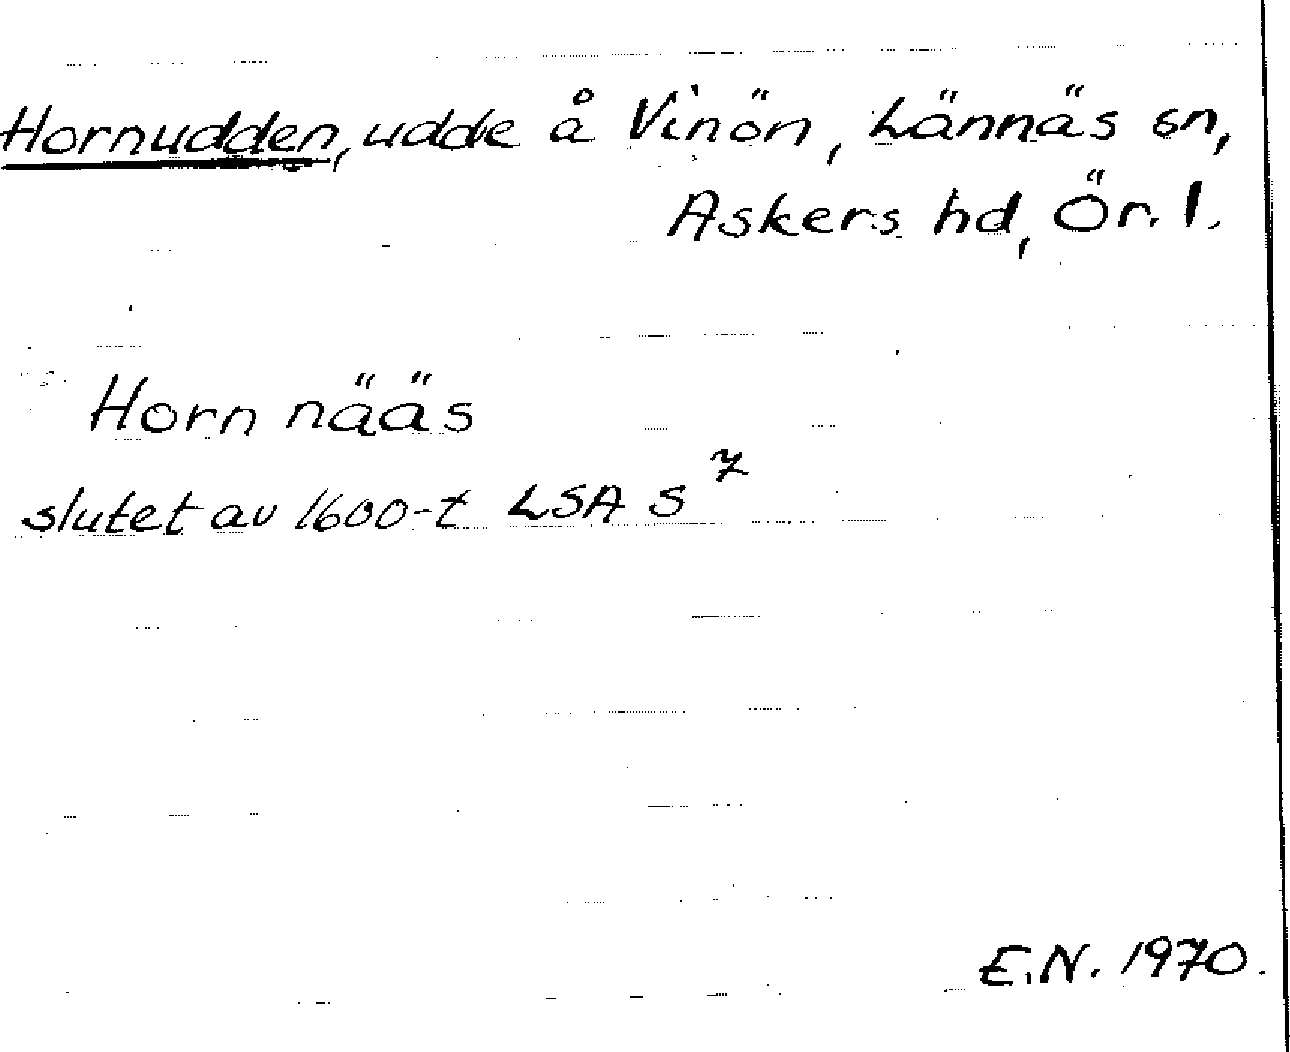 Hornudden, udde å Vinön, Lännäs sn,
Askers hd, Ör. l.
Horn nääs
slutet av 1600-t LSA S 7
E.N. 1970.